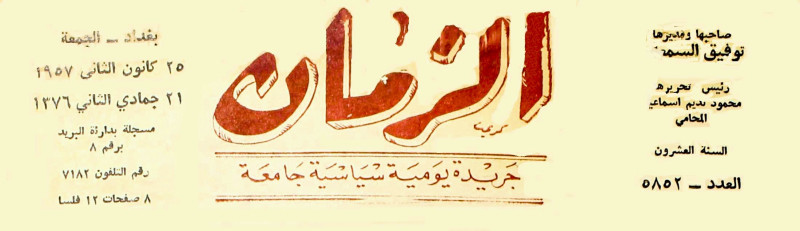 صاحبها ومديرها
توفيق السمعاني
رئيس تحريرها
محمود نديم اسماعيل
المحامي
السنة العشرون
العدد ــ ٥٨٥٢
الزمان
جريدة يومية سياسية جامعة
بغداد ــ الجمعة
٢٥ كانون الثاني ١٩٥٧
٢١ جمادي الثاني ١٣٧٦
مسجلة بدائرة البريد
برقم ٨
رقم التلفون ٧١٨٢
٨ صفحات ١٢ فلسا